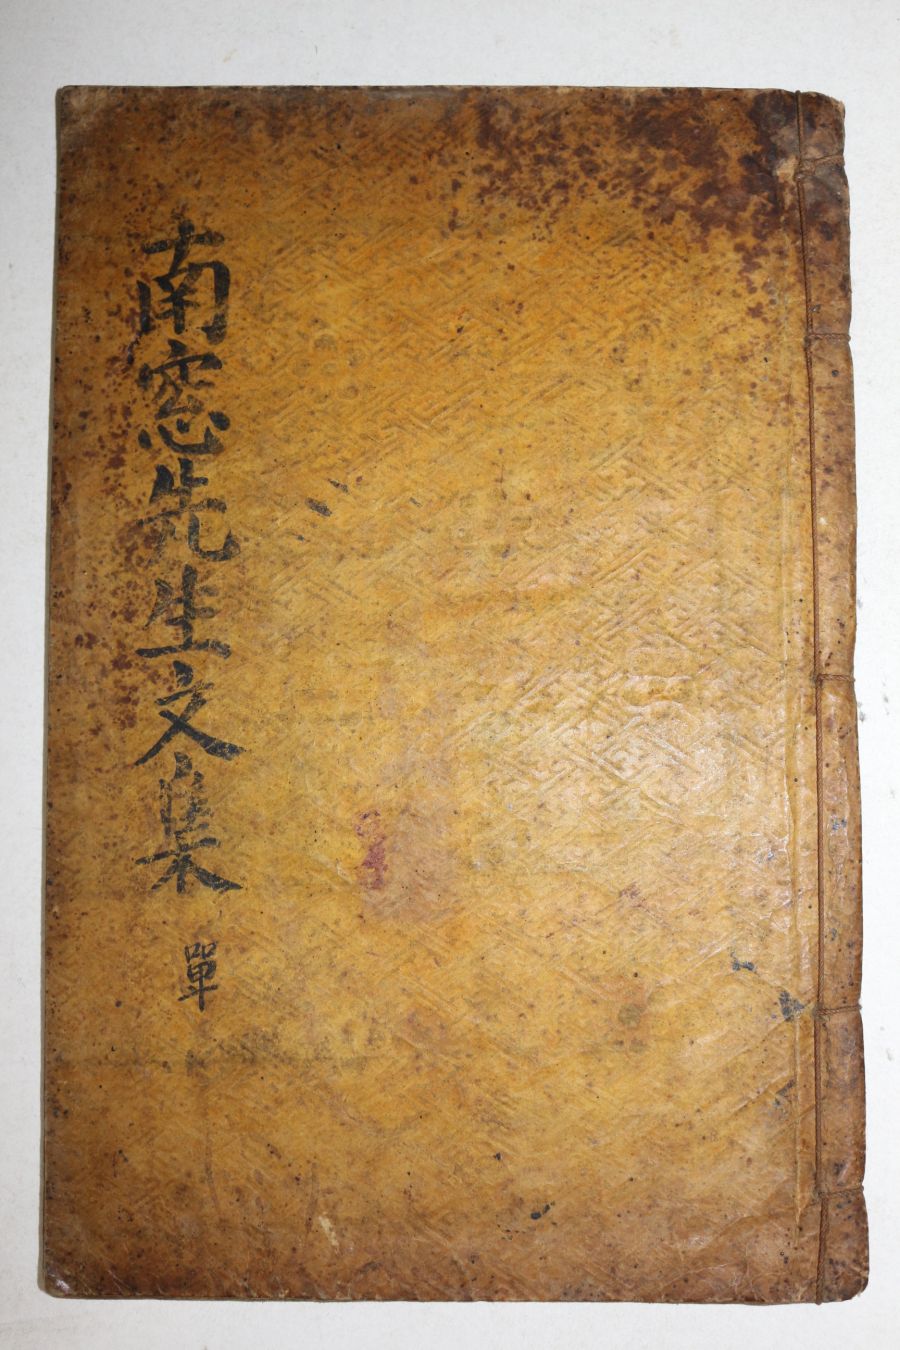 南窓先生文集
單